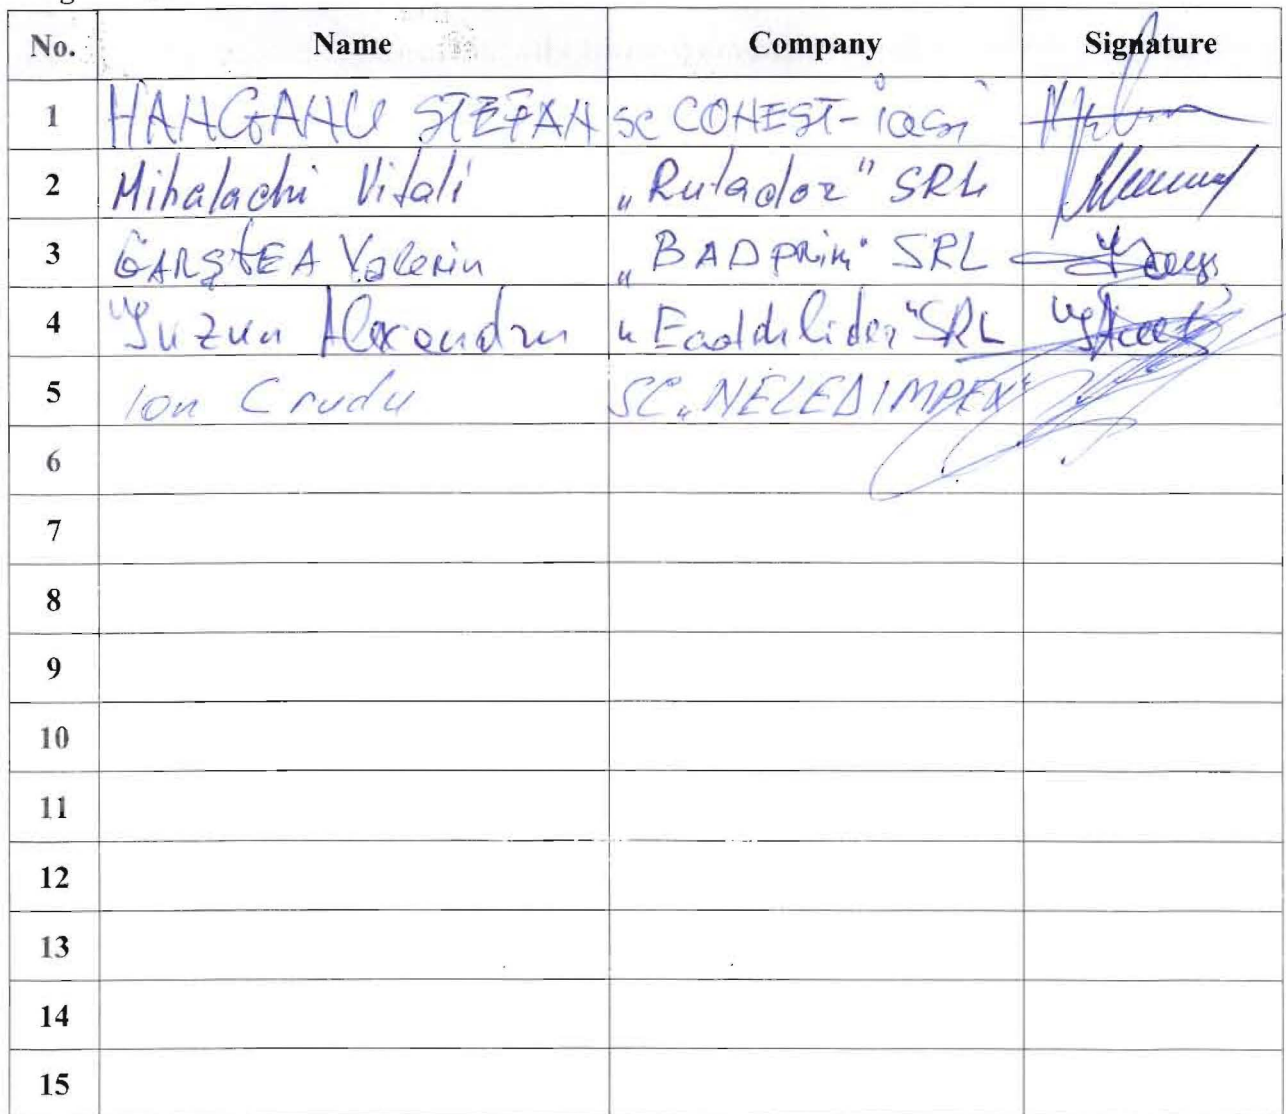 No. Name Company Signature
1 HANGANU STEFAN SC CONEST-iasi
2 Mihalachi Vitali „Rutador" SRL
3 GARȘTEA Valeriu „BADprim" SRL
4 Guzun Alexandru SRL
5 Ion Crudu SC „NELEDIMPEX"
6
7
8
9
10
11
12
13
14
15